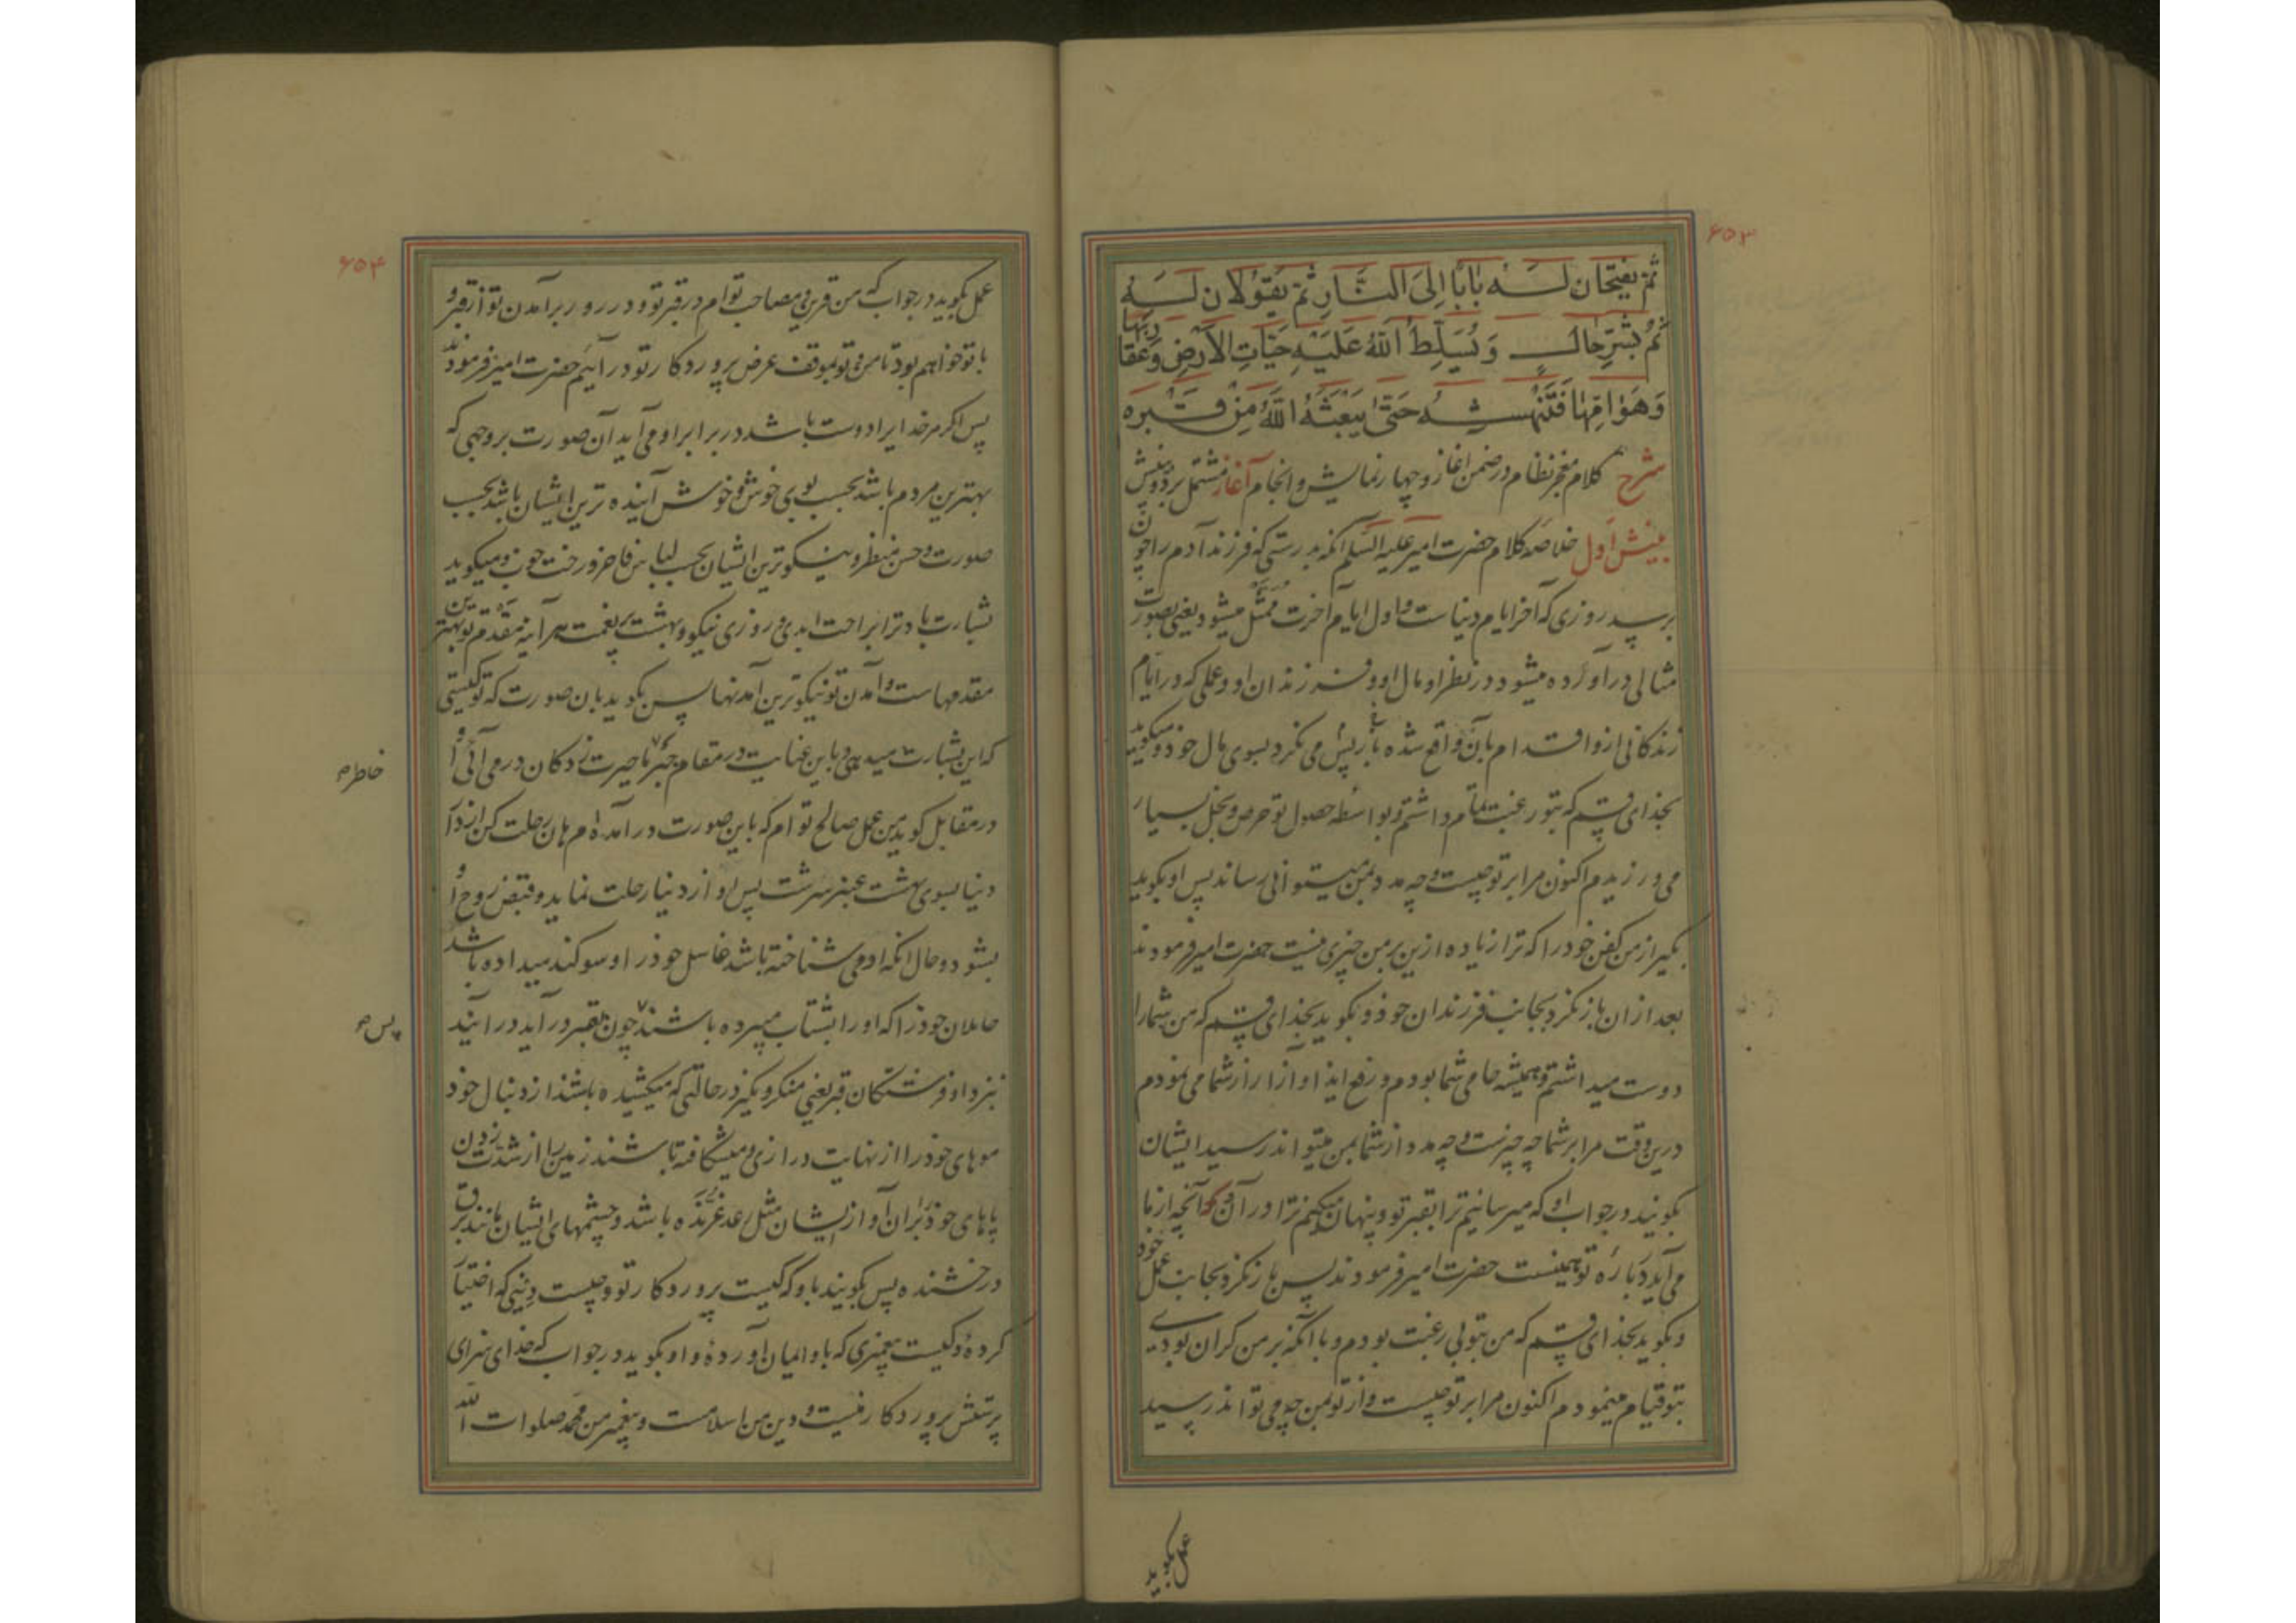 ۶۵۳
ثُمَّ یَفْتَحَانِ لَهُ بَابًا اِلَی النَّارِ ثُمَّ یَقُوْلَانِ لَهُ
نَمْ بِشَرِّ حَالٍ وَ یُسَلِّطُ اللّٰهُ عَلَیْهِ حَیَّاتِ الْاَرْضِ وَ عَقَارِبَهَا
وَ هَوَامَّهَا فَتَنْهَشُهُ حَتّٰی یَبْعَثَهُ اللّٰهُ مِنْ قَبْرِهِ
شرح کلام معجز نظام در ضمن اغاز و چهار نمایش و انجام آغاز مشتمل بر دو بینش
بینش اول خلاصه کلام حضرت امیر علیه السلم آنکه بدرستی که فرزند آدم را چون
برسد روزی که آخر ایام دنیاست و اول ایام آخرت ممثل میشود یعنی بصورت
مثالی در آورده میشود در نظر او مال او و فرزندان او و عملی که در ایام
زندکانی ازو اقدام بان واقع شده باشد پس می نکرد بسوی مال خود و میکوید
بخدای قسم که بتو رغبت تمام داشتم و بواسطه حصول تو حرص و بخل بسیار
می ورزیدم اکنون مرا بر تو چیست و چه مدد بمن میتوانی رساند پس او بکوید
بکیر از من کفن خود را که ترا زیاده ازین بر من چیزی نیست حضرت امیر فرمودند
بعد ازان باز نکرد بجانب فرزندان خود و بکوید بخدای قسم که من شما را
دوست میداشتم و همیشه حامی شما بودم و رفع ایذا و آزار از شما می نمودم
درین وقت مرا بر شما چه چیزست و چه مدد از شما بمن میتواند رسید ایشان
بکویند در جواب او که میرسانیم ترا بقبر تو و پنهان میکنیم ترا در آن و آنچه از ما
می آید در باره تو همینست حضرت امیر فرمودند پس باز نکرد بجانب عمل خود
و بکوید بخدای قسم که من بتو بی رغبت بودم و با آنکه بر من کران بودی
بتو قیام مینمودم اکنون مرا بر تو چیست و از تو بمن چه می تواند رسید
عمل بکوید
۶۵۴
عمل بکوید در جواب که من قرین و مصاحب توام در قبر تو و در روز برآمدن تو از قبر و
با تو خواهم بود تا من و تو بموقف عرض پروردکار تو در آئیم حضرت امیر فرمودند
پس اکر مر خدایرا دوست باشد در برابر او می آید آن صورت بر وجهی که
بهترین مردم باشد بحسب بوی خوش و خوش آینده ترین ایشان باشد بحسب
صورت و حسن منظر و نیکوترین ایشان بحسب لباس فاخر و رخت خوب و میکوید
بشارت باد ترا براحت ابدی و روزی نیکو و بهشت پر نعمت هر آینه مقدم تو بهترین
مقدمهاست و آمدن تو نیکوترین آمدنها پس بکوید بان صورت که تو کیستی
که این بشارت میدهی و باین عنایت در مقام جبر حیرت زدکان در می آئی او
خاطر
در مقابل کوید من عمل صالح توام که باین صورت در آمده ام هان رحلت کن از دار
دنیا بسوی بهشت عنبر سرشت پس او از دنیا رحلت نماید و قبض روح او
بشود و حال آنکه او می شناخته باشد غاسل خود را و سوکند میداده باشد
حاملان خود را که او را بشتاب میبرده باشند چون بقبر در آید در آیند
پس
نزد او فرشتکان قبر یعنی منکر و نکیر در حالتی که میکشیده باشند از دنبال خود
موهای خود را از نهایت درازی و میشکافته باشند زمین را از شدت زدن
پاهای خود بران آواز ایشان مثل رعد غرنده باشد و چشمهای ایشان مانند برق
درخشنده پس بکویند باو که کیست پروردکار تو و چیست دینی که اختیار
کرده و کیست پیغمبری که باو ایمان آورده و او بکوید در جواب که خدای سزای
پرستش پروردکار منست و دین من اسلامست و پیغمبر من محمد صلوات الله